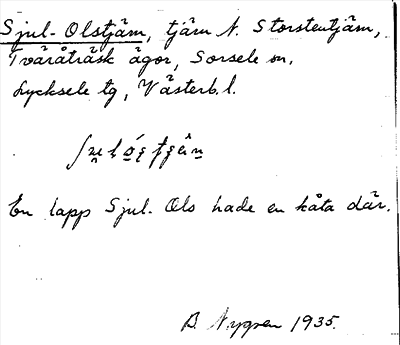 Sjul-Olstjärn, tjärn N. Storstentjärn,
Tvåråträsk ägor, Sorsele sn.
Lycksele tg, Västerb. l.
En lapp Sjul-Ols hade en kåta där.
B. Nygren 1935.